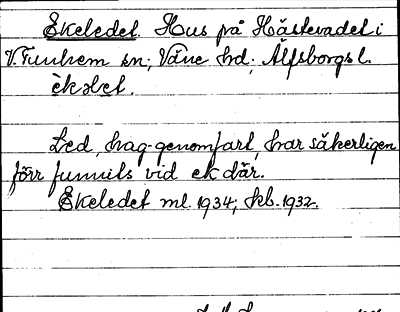 Ekeledet. Hus på Hästevadet i
V. Tunhem sn; Väne hd; Älfsborgs l.
Led, hag-genomfart, har säkerligen
förr funnits vid ek där.
Ekeledet ml. 1934; kb. 1932.